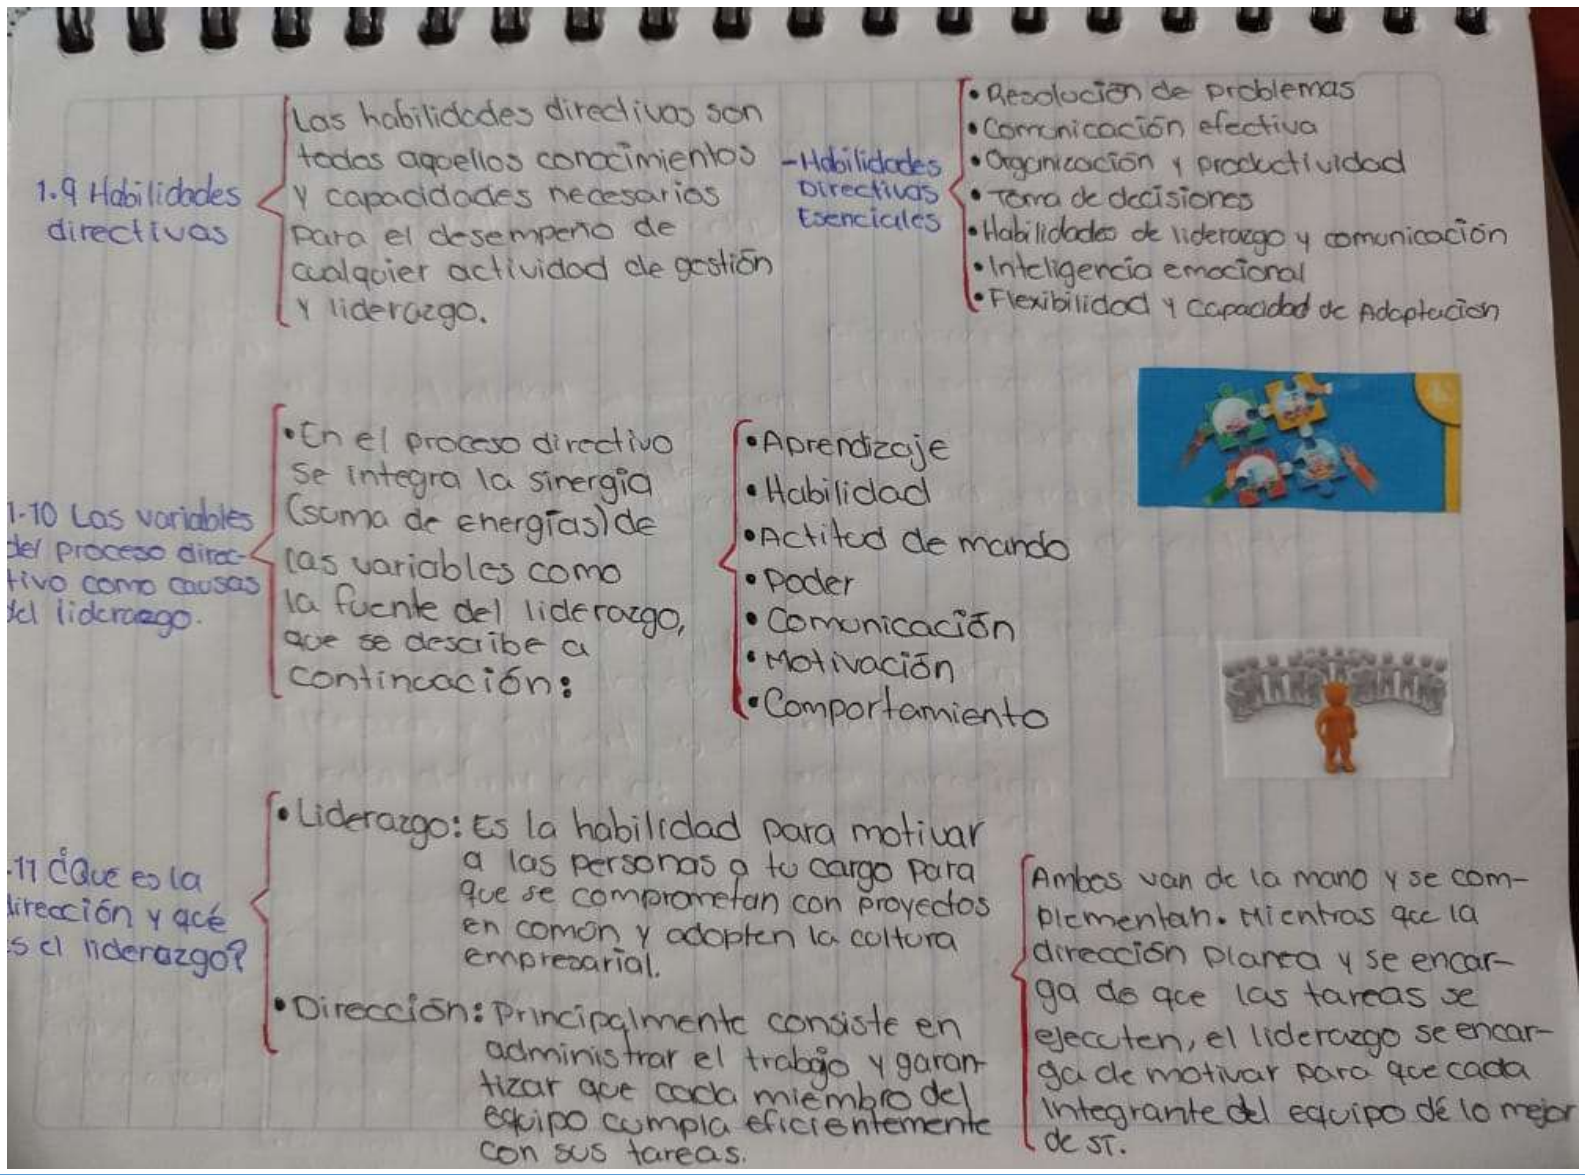 1.9 Habilidades
directivas
Las habilidades directivas son
todas aquellos conocimientos
y capacidades necesarios
para el desempeño de
cualquier actividad de gestión
y liderazgo.
-Habilidades
Directivas
Esenciales
• Resolución de problemas
• Comunicación efectiva
• Organización y productividad
• Toma de decisiones
• Habilidades de liderazgo y comunicación
• Inteligencia emocional
• Flexibilidad y capacidad de Adaptación
1.10 Las variables
del proceso direc-
tivo como causas
del liderazgo.
• En el proceso directivo
se integra la sinergia
(suma de energías) de
las variables como
la fuente del liderazgo,
que se describe a
continuación:
• Aprendizaje
• Habilidad
• Actitud de mando
• Poder
• Comunicación
• Motivación
• Comportamiento
.11 ¿Que es la
dirección y qué
es el liderazgo?
• Liderazgo: Es la habilidad para motivar
a las personas a tu cargo para
que se comprometan con proyectos
en común y adopten la cultura
empresarial.
• Dirección: Principalmente consiste en
administrar el trabajo y garan-
tizar que cada miembro del
equipo cumpla eficientemente
con sus tareas.
Ambos van de la mano y se com-
plementan. Mientras que la
dirección planea y se encar-
ga de que las tareas se
ejecuten, el liderazgo se encar-
ga de motivar para que cada
integrante del equipo dé lo mejor
de sí.